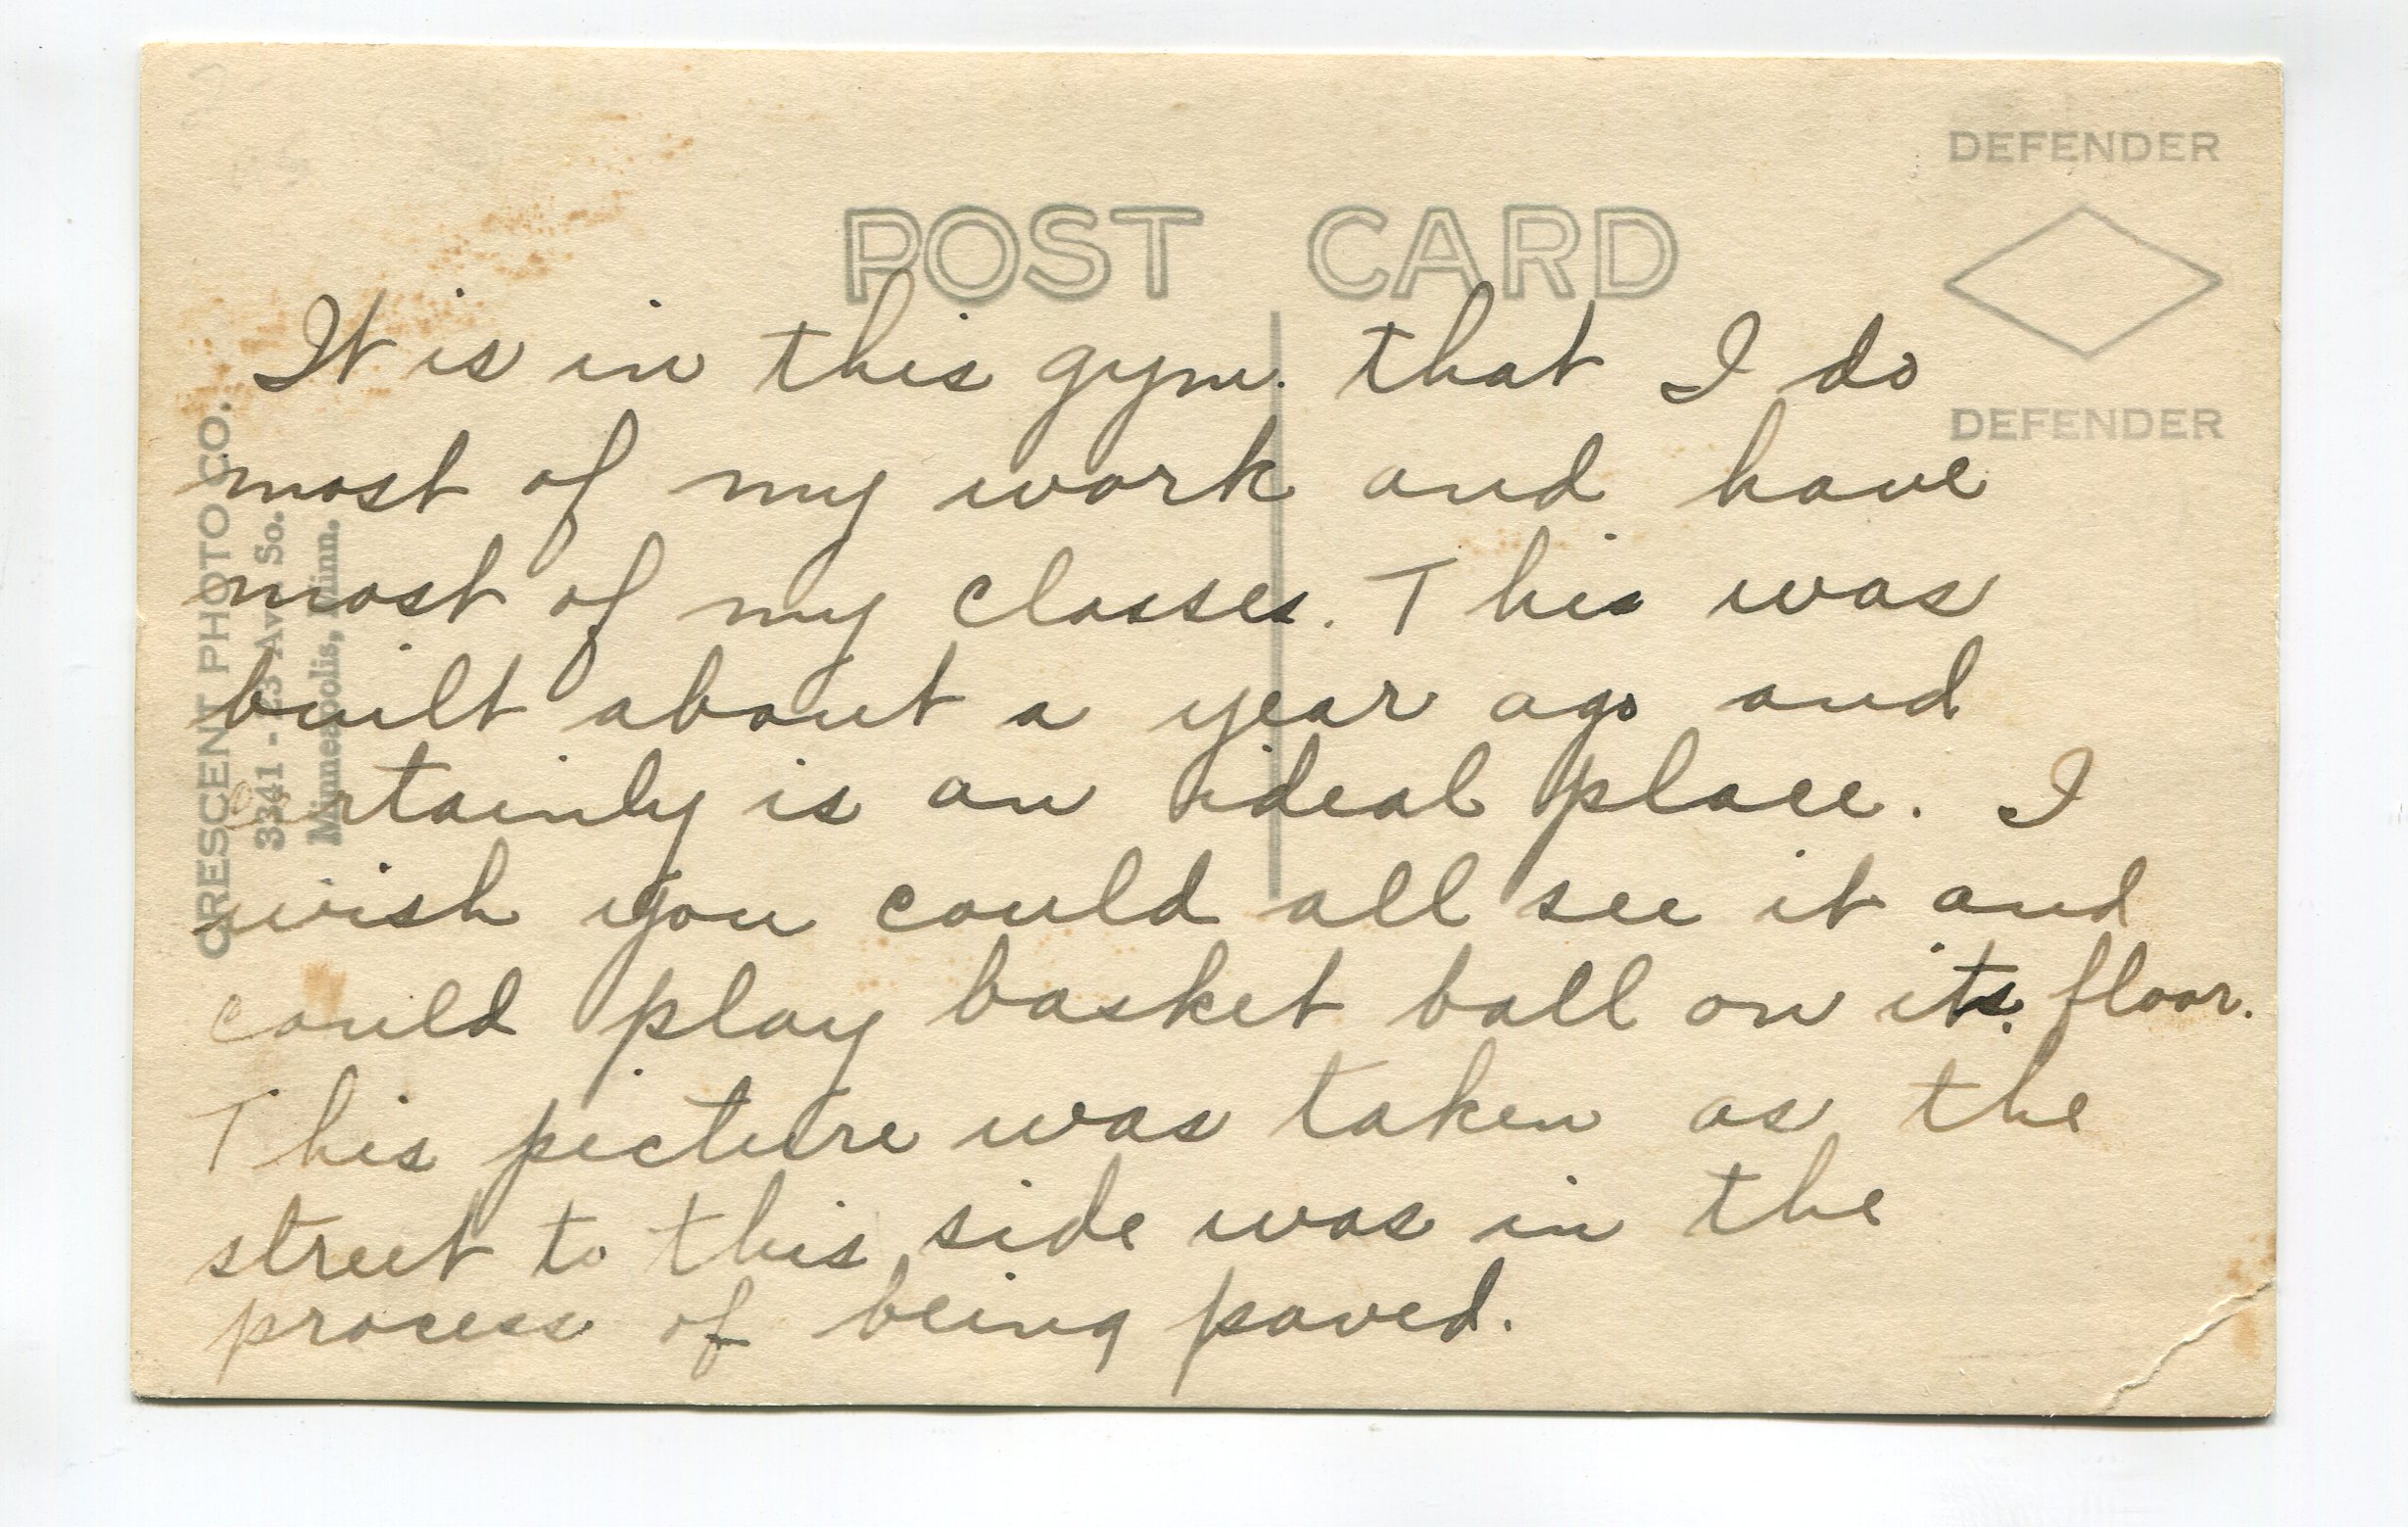 POST CARD
DEFENDER
DEFENDER
CRESCENT PHOTO CO.
3341 - 23 Av. So.
Minneapolis, Minn.
It is in this gym. that I do
most of my work and have
most of my classes. This was
built about a year ago and
certainly is an ideal place. I
wish you could all see it and
could play basket ball on its. floor.
This picture was taken as the
street to this side was in the
process of being paved.